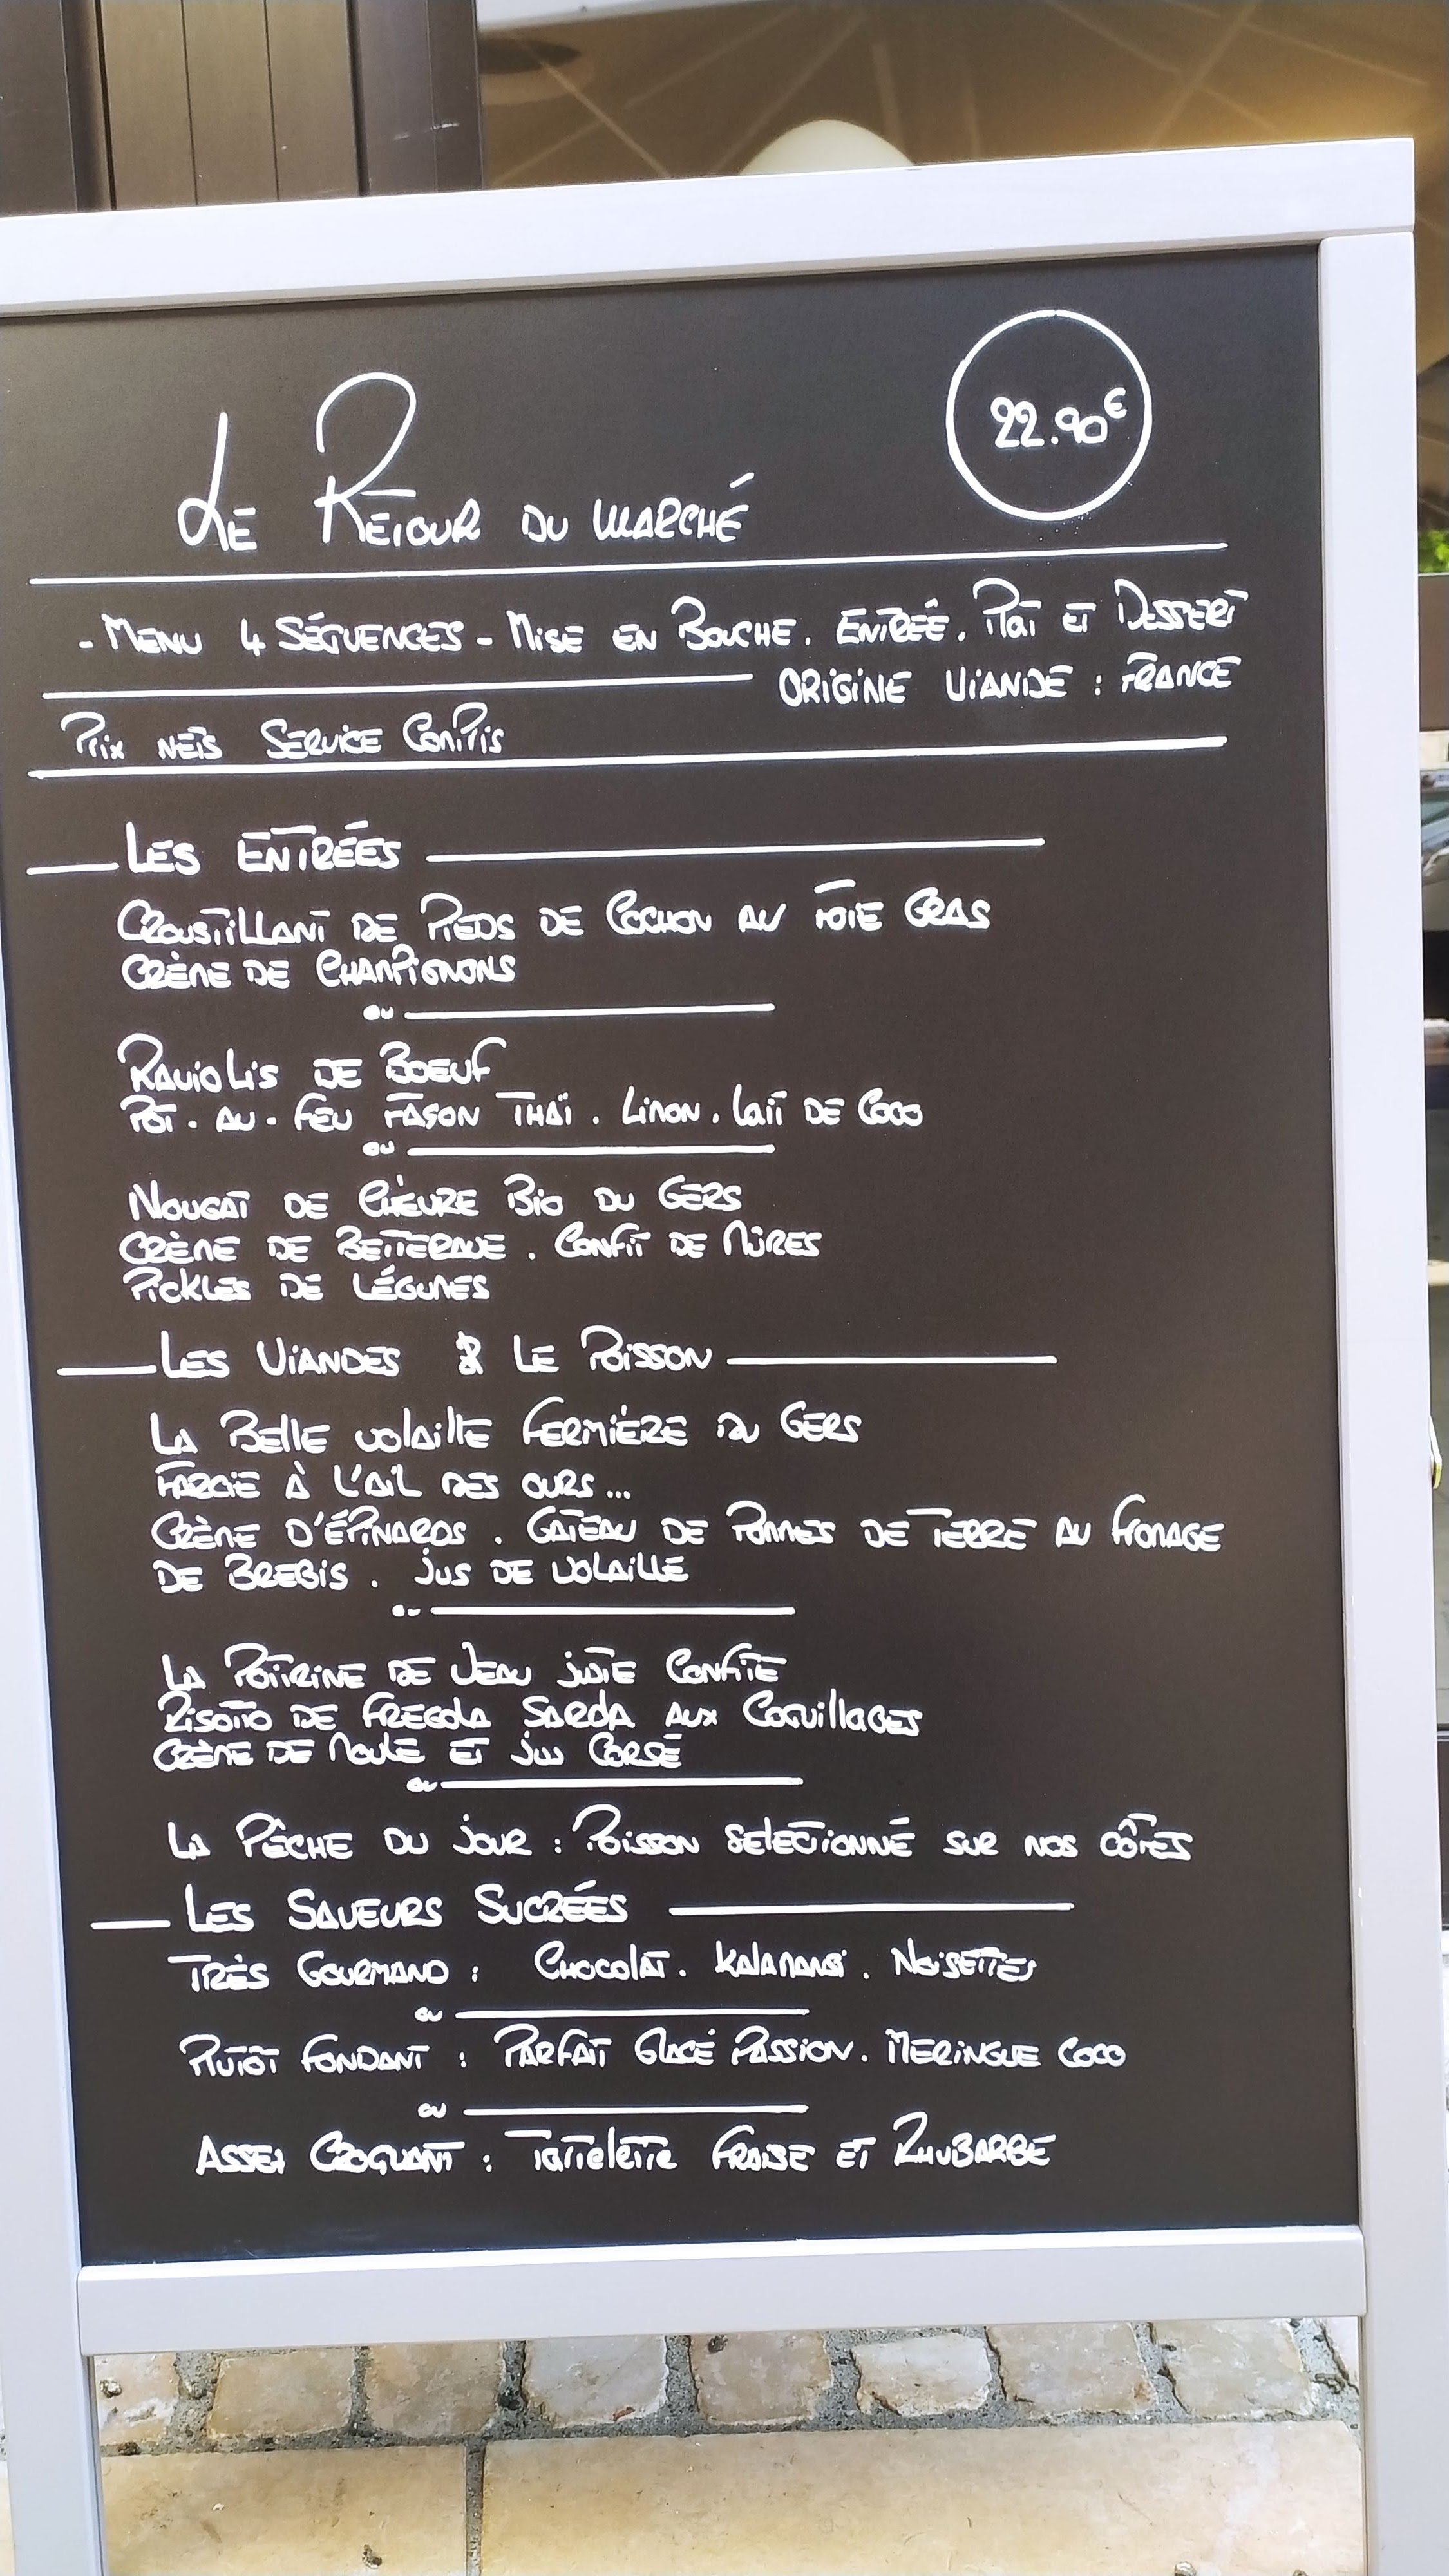 22.90€
Le Retour du Marché
- Menu 4 Séquences - Mise en Bouche. Entrée. Plat et Dessert
Origine Viande : France
Prix nets Service Compris
Les Entrées
Croustillant de Pieds de Cochon au Foie Gras
Crème de Champignons
ou
Raviolis de Boeuf
Pot-au-Feu Façon Thaï . Limon . Lait de Coco
ou
Nougat de Chèvre Bio du Gers
Crème de Betterave . Confit de Mûres
Pickles de Légumes
Les Viandes & Le Poisson
La Belle Volaille Fermière du Gers
Farcie à l'Ail des Ours...
Crème d'Épinards . Gateau de Pommes de Terre au Fromage
de Brebis . Jus de Volaille
ou
La Poitrine de Veau juste Confite
Risotto de Fregola Sarda aux Coquillages
Crème de Moule et jus Corsé
ou
La Pêche du jour : Poisson selectionné sur nos côtes
Les Saveurs Sucrées
Très Gourmand : Chocolat . Kalamansi . Noisettes
ou
Plutôt Fondant : Parfait Glacé Passion . Meringue Coco
ou
Assez Croquant : Tartelette Fraise et Rhubarbe